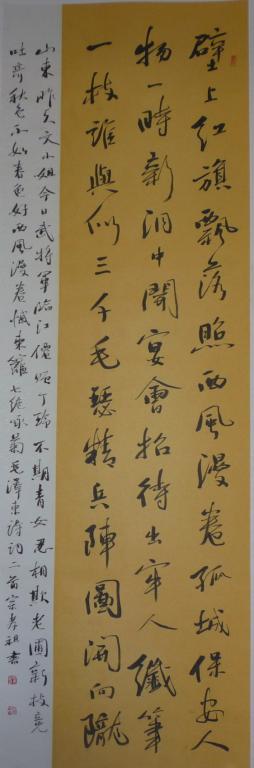 壁上紅旗飄落照西風漫卷孤城保安人
物一時新洞中開宴會招待出牢人纖筆
一枝誰與似三千毛瑟精兵陣圖開向隴
山東昨天文小姐今日武將軍臨江僊贈丁玲不期青女忽相欺老圃新枝竟
吐齊秋色不如春色好西風漫卷懺東籬七绝詠菊毛澤東詩詞二首宗孝祖書